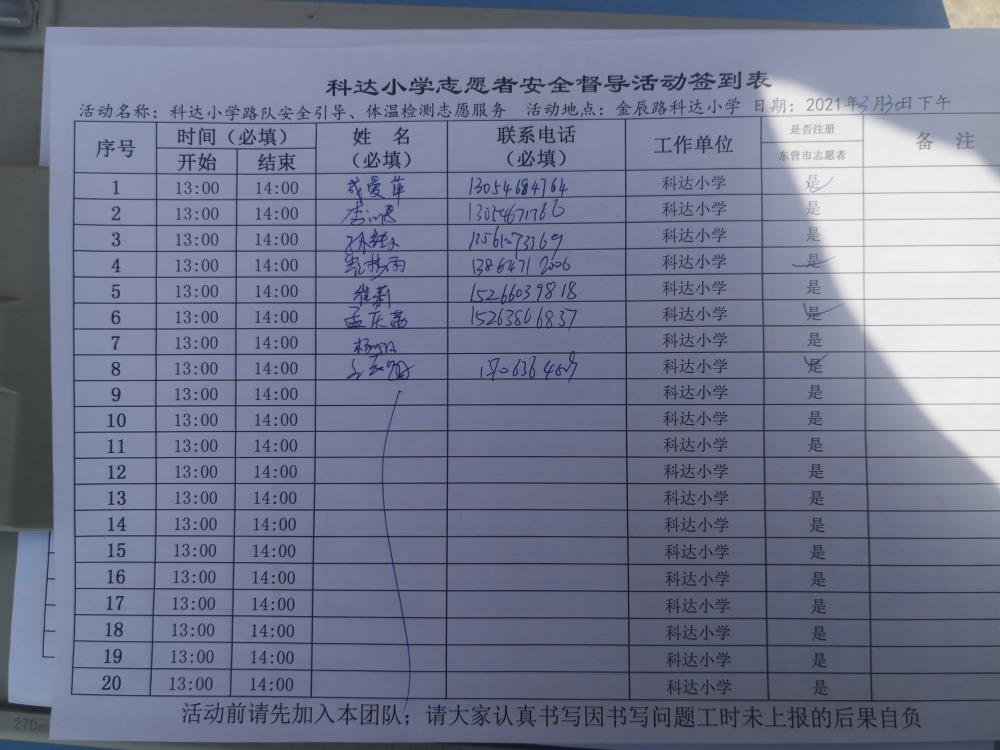 科达小学志愿者安全督导活动签到表
活动名称：科达小学路队安全引导、体温检测志愿服务 活动地点：金辰路科达小学 日期：2021年3月30日下午
序号 时间（必填） 姓 名（必填） 联系电话（必填） 工作单位 是否注册东营市志愿者 备 注
开始 结束
1 13:00 14:00 13054684764 科达小学 是
2 13:00 14:00 科达小学 是
3 13:00 14:00 科达小学 是
4 13:00 14:00 科达小学 是
5 13:00 14:00 崔莉 15266039818 科达小学 是
6 13:00 14:00 孟庆茹 15263866837 科达小学 是
7 13:00 14:00 科达小学 是
8 13:00 14:00 科达小学 是
9 13:00 14:00 科达小学 是
10 13:00 14:00 科达小学 是
11 13:00 14:00 科达小学 是
12 13:00 14:00 科达小学 是
13 13:00 14:00 科达小学 是
14 13:00 14:00 科达小学 是
15 13:00 14:00 科达小学 是
16 13:00 14:00 科达小学 是
17 13:00 14:00 科达小学 是
18 13:00 14:00 科达小学 是
19 13:00 14:00 科达小学 是
20 13:00 14:00 科达小学 是
活动前请先加入本团队；请大家认真书写因书写问题工时未上报的后果自负